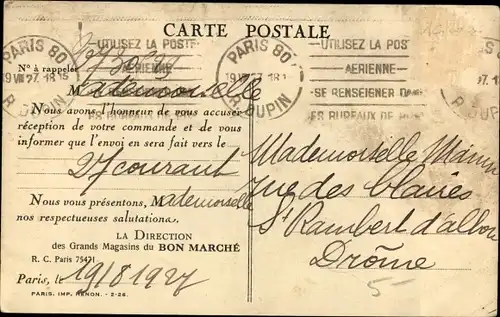 CARTE POSTALE
PARIS 80
19 VIII 27. 18 15
R. DUPIN
UTILISEZ LA POSTE
AERIENNE
PARIS 80
R. DUPIN
UTILISEZ LA POS
AERIENNE
SE RENSEIGNER DANS
LES BUREAUX DE
N° à rappeler
Mademoiselle
Nous avons l'honneur de vous accuser
réception de votre commande et de vous
informer que l'envoi en sera fait vers le
27 courant
Nous vous présentons, Mademoiselle
nos respectueuses salutations.
LA DIRECTION
des Grands Magasins du BON MARCHÉ
R. C. Paris 75471
Paris, le 19/8 1927
PARIS. IMP. RENON. - 2-26.
Mademoiselle
rue des
St Rambert d'albon
Drôme
5